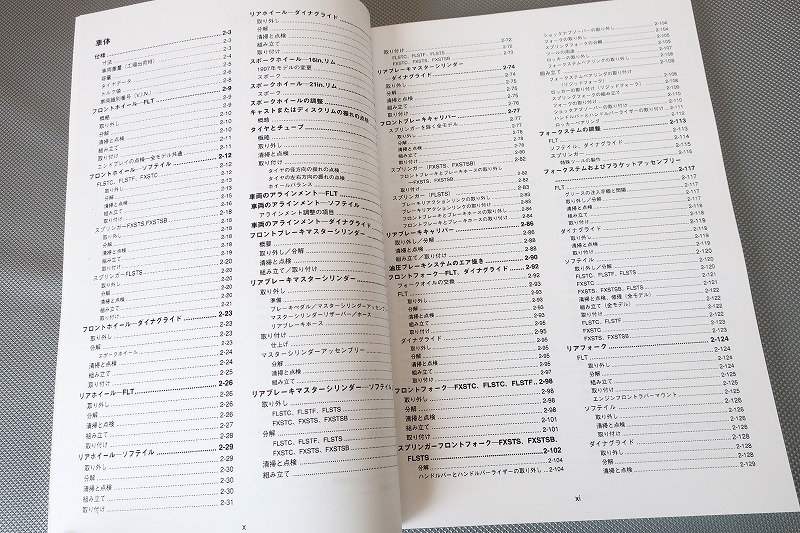 車体
仕様 2-3
寸法 2-3
車両重量（工場出荷時） 2-3
容量 2-3
タイヤデータ 2-4
トルク値
車両識別番号（V.I.N.）
フロントホイール―FLT 2-9
概略 2-9
取り外し 2-10
分解 2-10
清掃と点検 2-10
組み立て 2-11
取り付け 2-11
エンドプレイの点検―全モデル共通
フロントホイール―ソフテイル 2-12
FLSTC、FLSTF、FXSTC
取り外し
分解
清掃と点検
組み立て
取り付け 2-18
スプリンガーFXSTS、FXSTSB 2-18
取り外し 2-18
分解
清掃と点検 2-19
組み立て
取り付け 2-20
スプリンガーFLSTS 2-20
取り外し 2-20
分解 2-20
清掃と点検 2-20
組み立て 2-21
取り付け
フロントホイール―ダイナグライド 2-23
取り外し 2-23
分解 2-23
スポークホイール 2-24
清掃と点検 2-24
組み立て 2-24
取り付け
リアホイール―FLT 2-26
取り外し 2-26
分解 2-26
清掃と点検 2-26
組み立て 2-27
取り付け 2-28
リアホイール―ソフテイル 2-29
取り外し 2-29
分解 2-30
清掃と点検 2-30
組み立て 2-30
取り付け 2-31
リアホイール―ダイナグライド
取り外し
分解
清掃と点検
組み立て
取り付け
スポークホイール―16in.リム
1997年モデルの変更
スポーク
スポークホイール―21in.リム
スポーク
スポークホイールの調整
キャストまたはディスクリムの振れの点検
概略
タイヤとチューブ
概略
取り外し
清掃と点検
取り付け
タイヤの径方向の振れの点検
タイヤの左右方向の振れの点検
ホイールバランス
車両のアラインメント―FLT
車両のアラインメント―ソフテイル
アラインメント調整の項目
車両のアラインメント―ダイナグライド
フロントブレーキマスターシリンダー
概要
取り外し／分解
清掃と点検
組み立て／取り付け
リアブレーキマスターシリンダー
取り外し
準備
ブレーキペダル／マスターシリンダーアッセンブ
マスターシリンダーリザーバー／ホース
リアブレーキホース
取り付け
仕上げ
マスターシリンダーアッセンブリー
分解
清掃と点検
組み立て
リアブレーキマスターシリンダー―ソフテイル
取り外し
FLSTC、FLSTF、FLSTS
FXSTC、FXSTS、FXSTSB
分解
FLSTC、FLSTF、FLSTS
FXSTC、FXSTS、FXSTSB
清掃と点検
組み立て
x
取り付け 2-72
FLSTC、FLSTF、FLSTS 2-72
FXSTC、FXSTS、FXSTSB 2-73
リアブレーキマスターシリンダー
ダイナグライド 2-74
取り外し
分解
清掃と点検
組み立て
取り付け 2-77
フロントブレーキキャリパー 2-77
スプリンガーを除く全モデル
取り外し
分解
清掃と点検
組み立て
取り付け
スプリンガー（FXSTS、FXSTSB） 2-82
フロントブレーキとブレーキホースの取り外し
―FXSTS、FXSTSB
取り付け
スプリンガー（FLSTS）
ブレーキリアクションリンクの取り外し
ブレーキリアクションリンクの取り付け
フロントブレーキとブレーキホースの取り外し
フロントブレーキとブレーキホースの取り付け
リアブレーキキャリパー 2-86
取り外し／分解 2-86
清掃と点検 2-88
組み立て／取り付け 2-88
油圧ブレーキシステムのエア抜き 2-90
フロントフォーク―FLT、ダイナグライド 2-92
フォークオイルの交換 2-92
FLT 2-93
取り外し 2-93
分解 2-93
清掃と点検 2-94
組み立て 2-94
取り付け 2-95
ダイナグライド 2-95
取り外し 2-95
分解 2-95
清掃と点検 2-96
組み立て 2-96
取り付け 2-97
フロントフォーク―FXSTC、FLSTC、FLSTF 2-98
取り外し 2-98
分解 2-98
清掃と点検 2-98
組み立て 2-101
取り付け 2-101
スプリンガーフロントフォーク―FXSTS、FXSTSB、
FLSTS 2-102
分解 2-104
ハンドルバーとハンドルバーライザーの取り外し 2-104
ショックアブソーバーの取り外し 2-104
フォークの取り外し 2-104
スプリングフォークの分解
ツールの用途
ロッカーの取り外し
フォークステムベアリングの取り外し 2-108
組み立て 2-108
フォークステムベアリングの取り付け
（リジッドフォーク）
ロッカーの取り付け（リジッドフォーク）
スプリングフォークの組み立て
フォークの取り付け
ショックアブソーバーの取り付け
ハンドルバーとハンドルバーライザーの取り付け
ロッカーベアリング
フォークステムの調整 2-113
FLT 2-113
ソフテイル、ダイナグライド 2-114
スプリンガー 2-115
特殊ツールの製作 2-115
フォークステムおよびブラケットアッセンブリー
2-117
FLT 2-117
グリースの注入手順と間隔 2-117
取り外し／分解 2-117
清掃と点検 2-117
組み立て 2-118
取り付け 2-119
ダイナグライド 2-119
取り外し 2-119
清掃と点検 2-119
取り付け 2-119
ソフテイル 2-120
取り外し／分解 2-120
FLSTC、FLSTF、FLSTS 2-120
FXSTC 2-121
FXSTS、FXSTSB、FLSTS 2-121
清掃と点検、修理（全モデル） 2-122
組み立て（全モデル） 2-122
取り付け 2-122
FLSTC、FLSTF 2-123
FXSTC 2-123
FXSTS、FXSTSB 2-123
リアフォーク 2-124
FLT 2-124
取り外し 2-124
分解 2-124
組み立て 2-125
取り付け 2-125
エンジンフロントラバーマウント 2-125
ソフテイル 2-126
取り外し 2-126
清掃と点検 2-126
取り付け 2-126
ダイナグライド 2-128
取り外し 2-128
分解 2-128
清掃と点検 2-129
xi